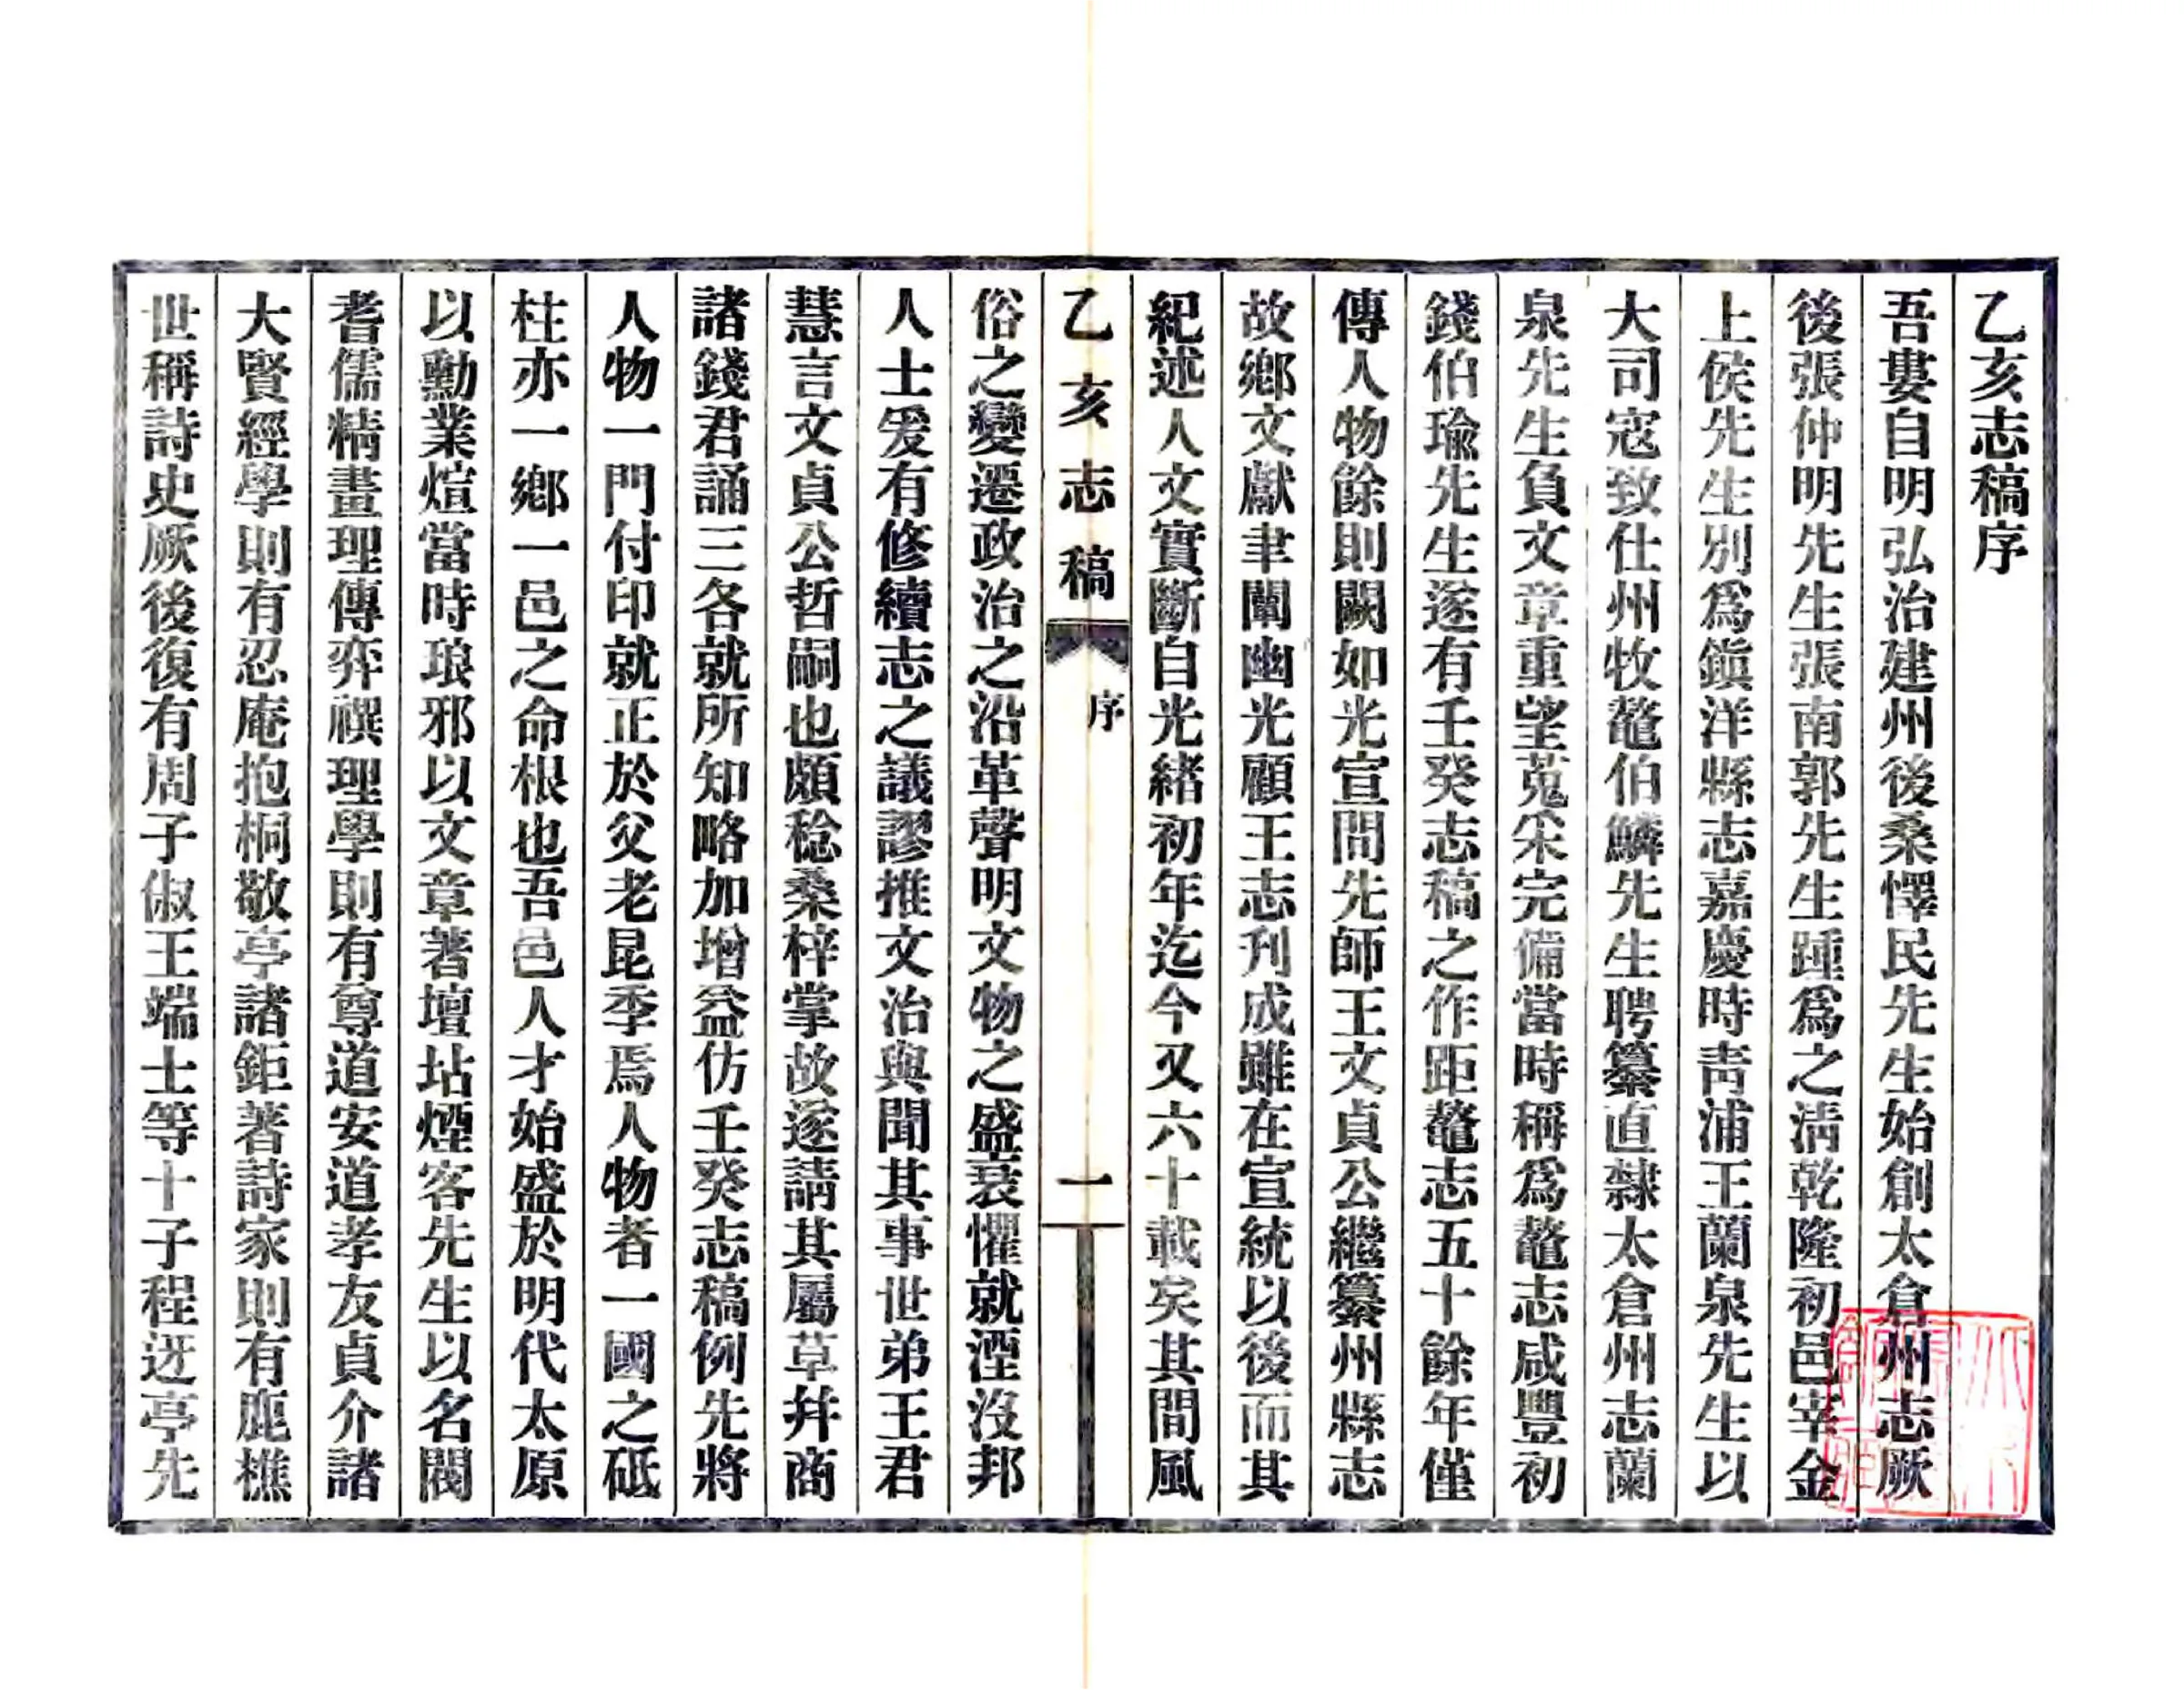 乙亥志稿序
吾婁自明弘治建州後桑懌民先生始創太倉州志厥
後張仲明先生張南郭先生踵爲之淸乾隆初邑宰金
上侯先生別爲鎭洋縣志嘉慶時靑浦王蘭泉先生以
大司寇致仕州牧鼇伯鱗先生聘纂直隸太倉州志蘭
泉先生負文章重望蒐采完備當時稱爲鼇志咸豐初
錢伯瑜先生遂有壬癸志稿之作距鼇志五十餘年僅
傳人物餘則闕如光宣間先師王文貞公繼纂州縣志
故鄉文獻聿闡幽光顧王志刊成雖在宣統以後而其
紀述人文實斷自光緒初年迄今又六十載矣其間風
乙亥志稿 序 一
俗之變遷政治之沿革聲明文物之盛衰懼就湮沒邦
人士爰有修續志之議謬推文治與聞其事世弟王君
慧言文貞公哲嗣也頗稔桑梓掌故遂請其屬草幷商
諸錢君誦三各就所知略加增益仿壬癸志稿例先將
人物一門付印就正於父老昆季焉人物者一國之砥
柱亦一鄉一邑之命根也吾邑人才始盛於明代太原
以勳業煊當時琅邪以文章著壇坫煙客先生以名閥
耆儒精畫理傳弈禩理學則有尊道安道孝友貞介諸
大賢經學則有忍庵抱桐敬亭諸鉅著詩家則有鹿樵
世稱詩史厥後復有周子俶王端士等十子程迓亭先